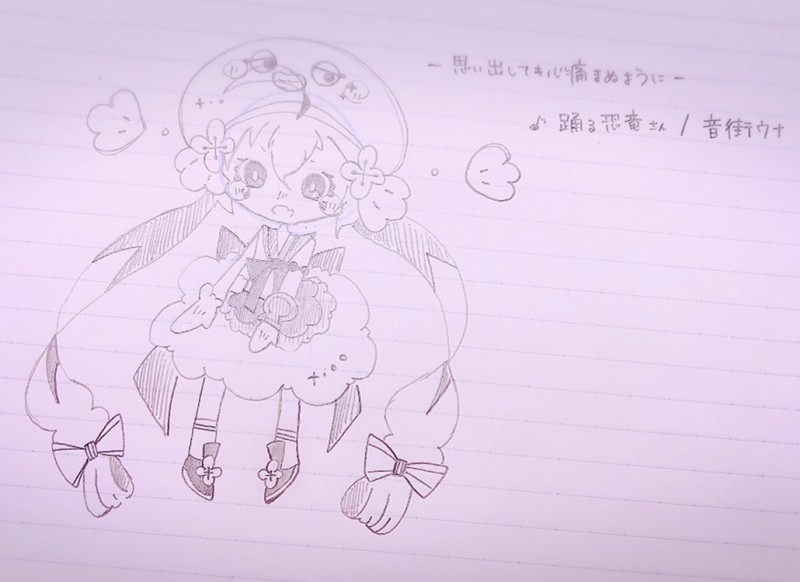 - 思い出しても心痛まぬように -
♪ 踊る恐竜さん / 音街ウナ